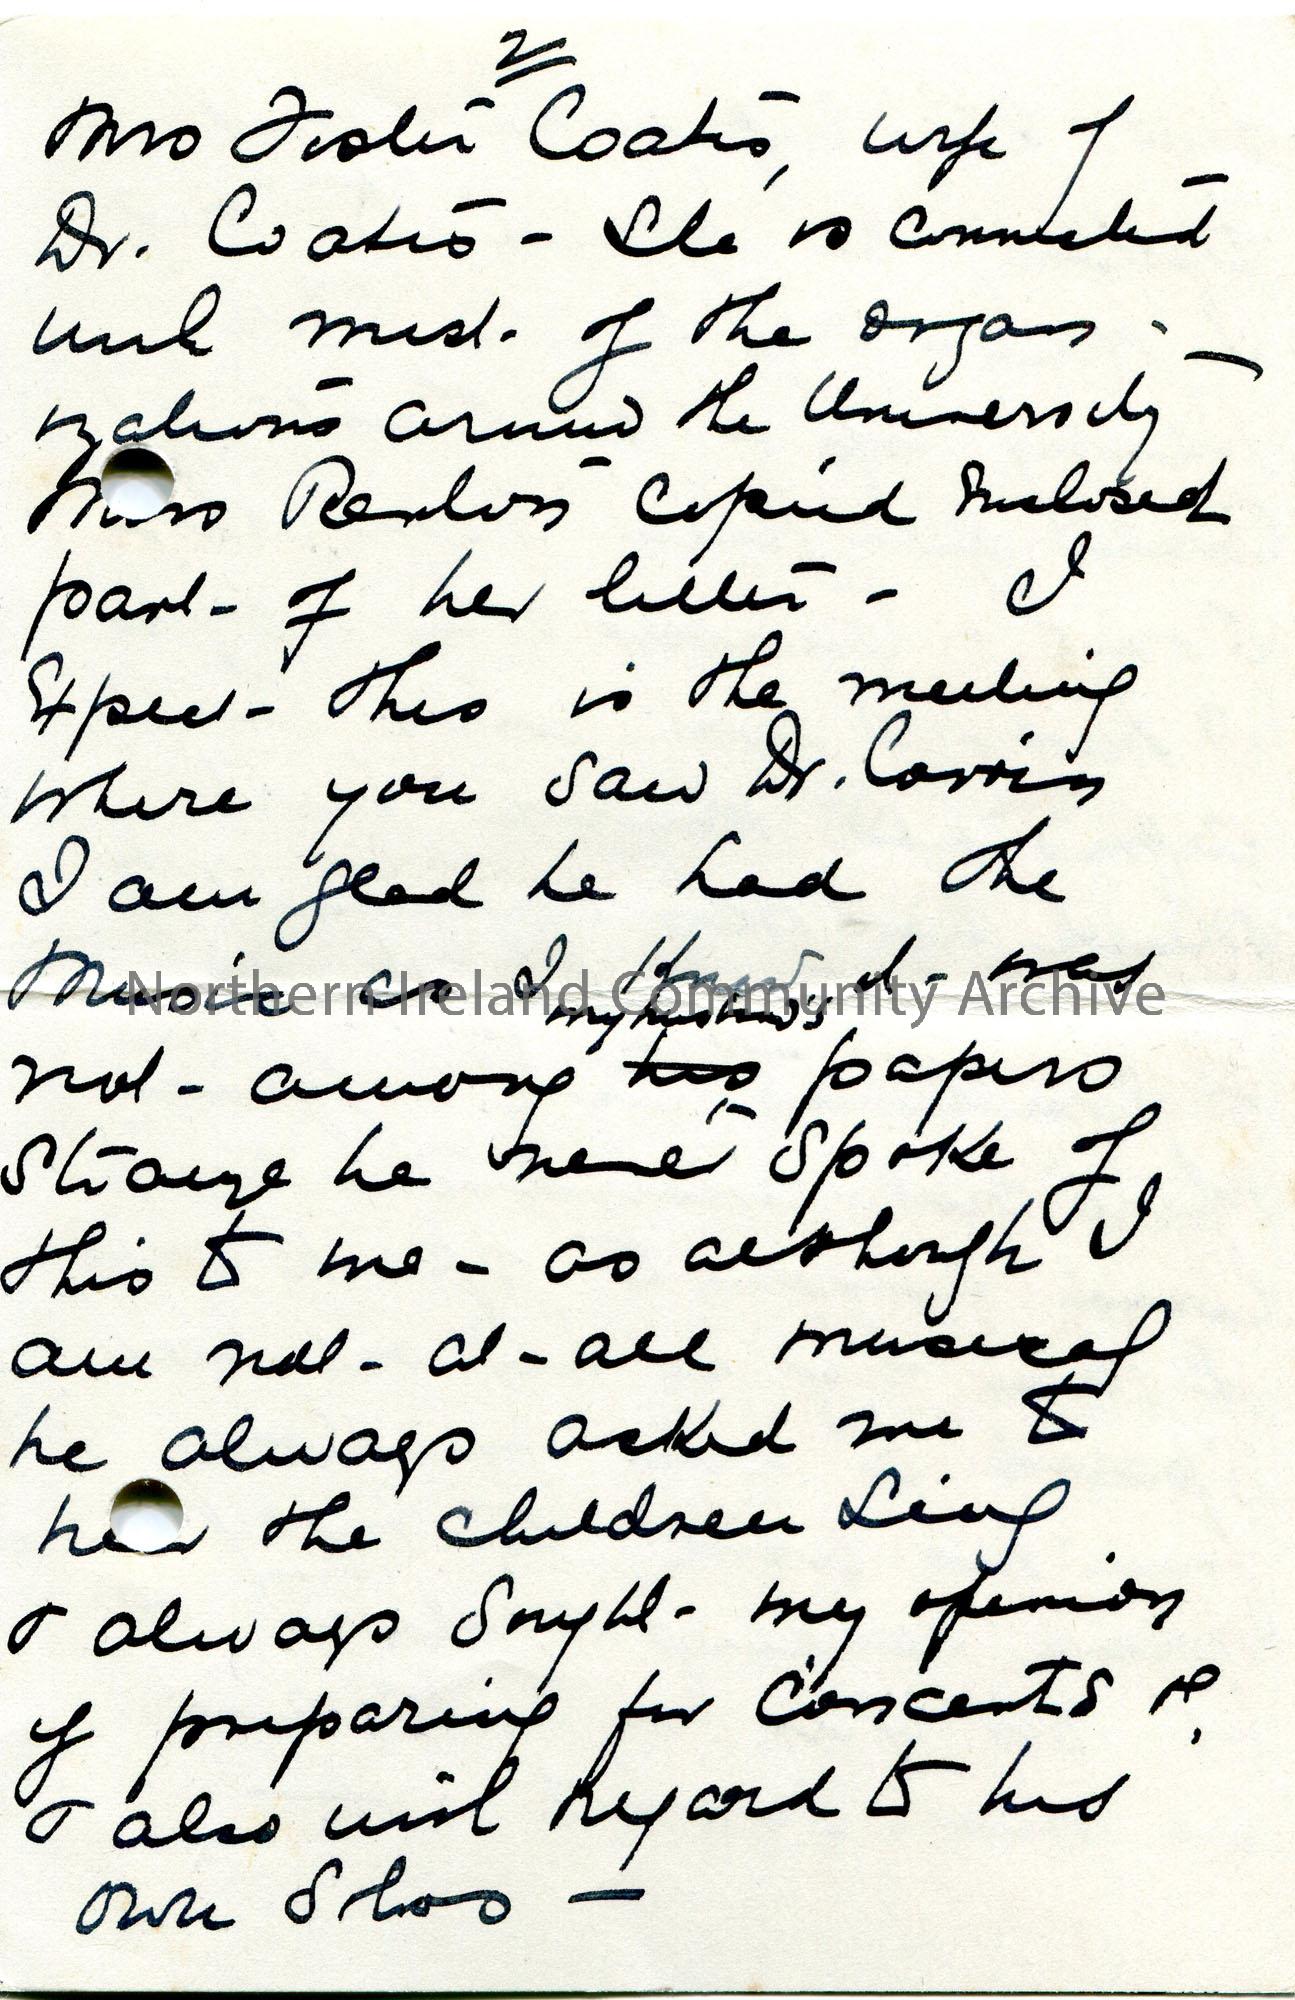 2
Mrs Foster Coates, wife of
Dr. Coates - She is connected
with most of the organ-
izations around the University
Miss copied enclosed
part of her letter - I
Expect this is the meeting
where you saw Dr.
I am glad he had the
Music as I knew it was
my husband's
not among his papers
Strange he never spoke of
this to me - as although I
am not at all musical
he always asked me to
hear the children sing
& always sought my opinion
if preparing for Concerts
& also with regard to his
own
Northern Ireland Community Archive